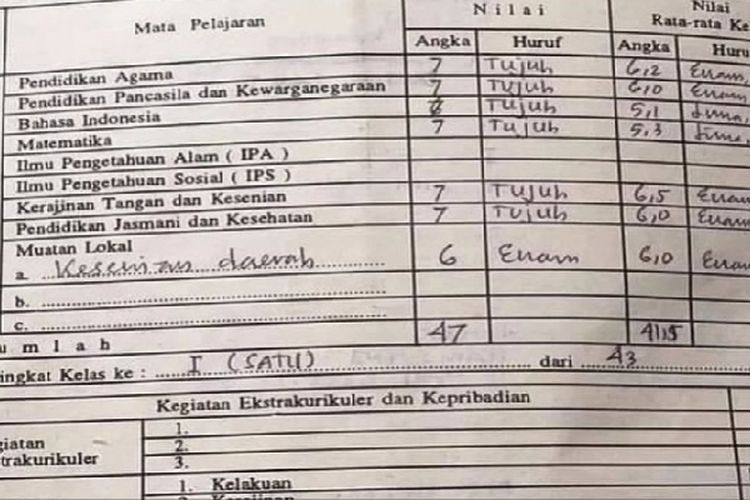 Mata Pelajaran Nilai Nilai
Rata-rata Ke
Angka Huruf Angka Huru
Pendidikan Agama 7 Tujuh 6,2 Enam
Pendidikan Pancasila dan Kewarganegaraan 7 Tujuh 6,0 Enam
Bahasa Indonesia 7 Tujuh 5,1 Lima
Matematika 7 Tujuh 5,3 Lima
Ilmu Pengetahuan Alam ( IPA )
Ilmu Pengetahuan Sosial ( IPS )
Kerajinan Tangan dan Kesenian 7 Tujuh 6,5 Enam
Pendidikan Jasmani dan Kesehatan 7 Tujuh 6,0 Enam
Muatan Lokal
a. Kesenian daerah 6 Enam 6,0 Enam
b.
c.
u m l a h 47 41,5
ingkat Kelas ke : I (SATU) dari 43
Kegiatan Ekstrakurikuler dan Kepribadian
giatan 1.
2.
trakurikuler 3.
1. Kelakuan
Kerajinan